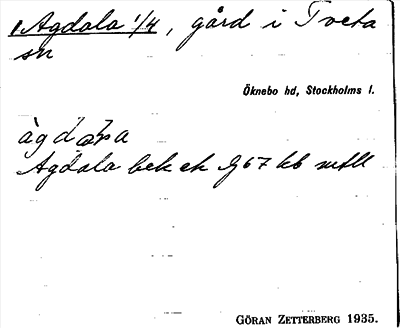 Agdala 1/4, gård i Tveta
sn
Öknebo hd, Stockholms l.
àgdaɭa
Agdala bek ek G 67 kb
GÖRAN ZETTERBERG 1935.